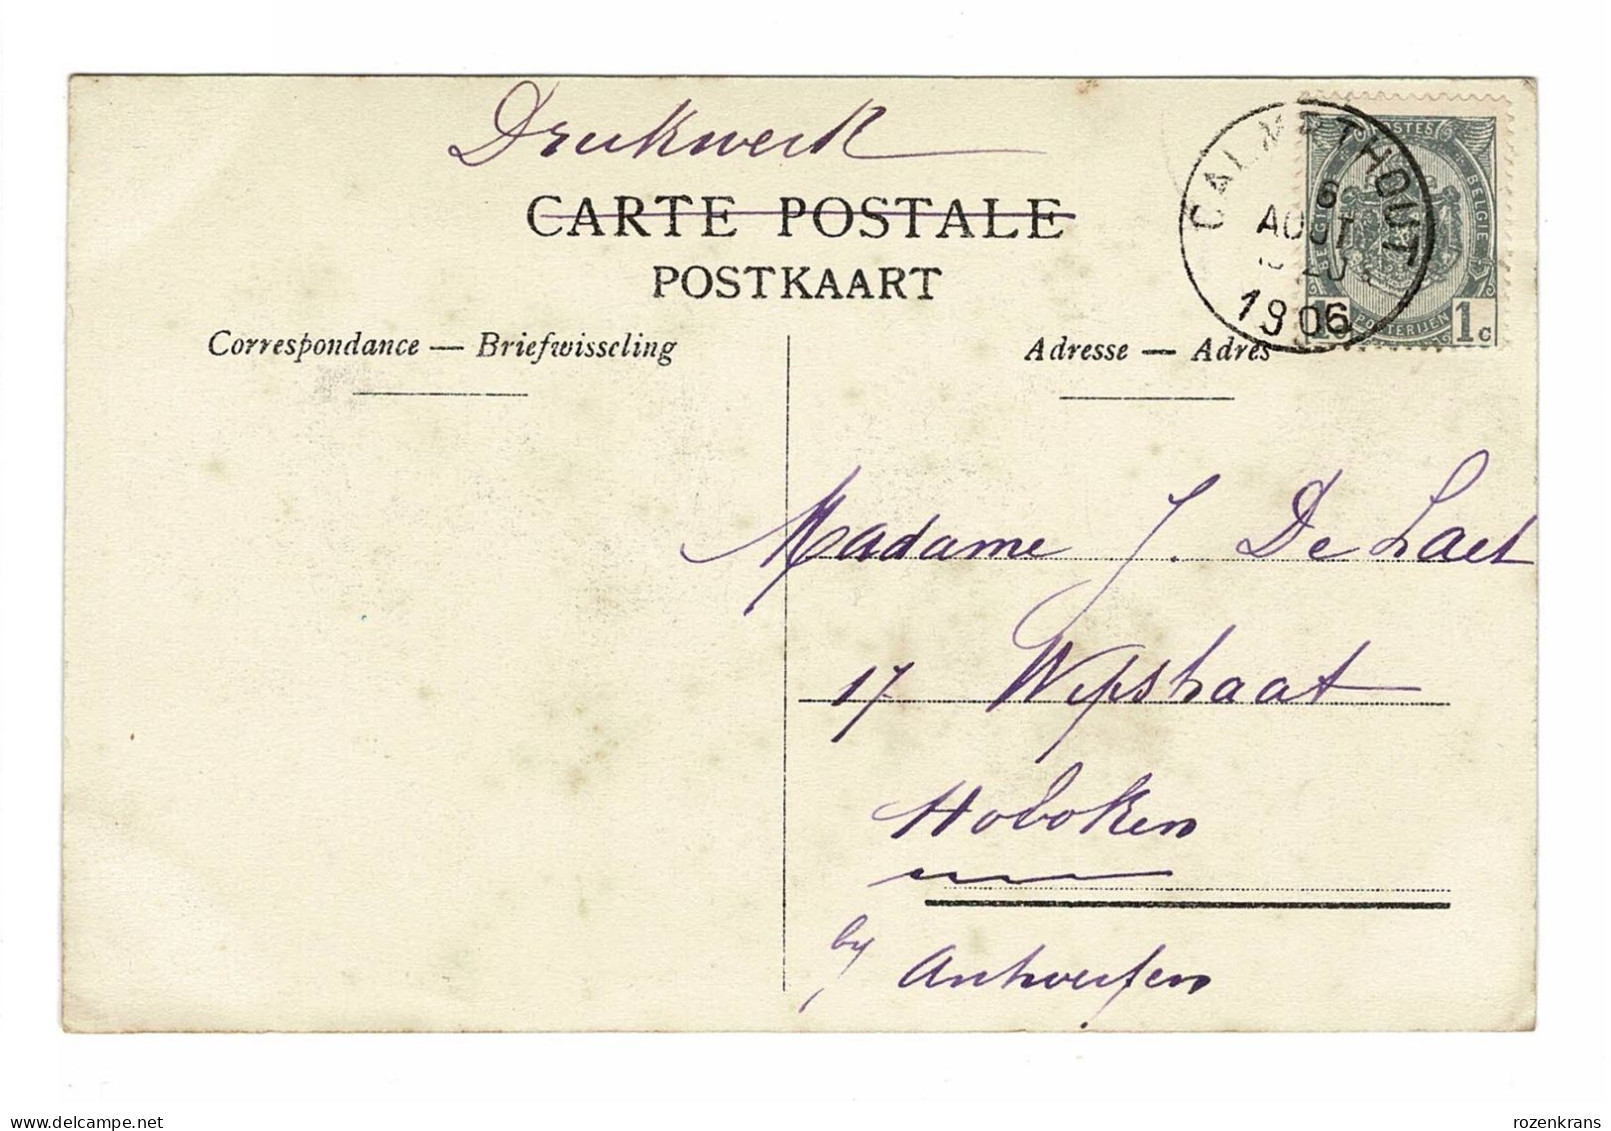 Drukwerk
CARTE POSTALE
POSTKAART
Correspondance — Briefwisseling
Adresse — Adres
CALMPTHOUT
6
AOUT
1906
POSTES
BELGIE
BELGIE
POSTERIJEN
1c
Madame J. De Laet
17
Hoboken
by
Antwerpen
rozenkrans